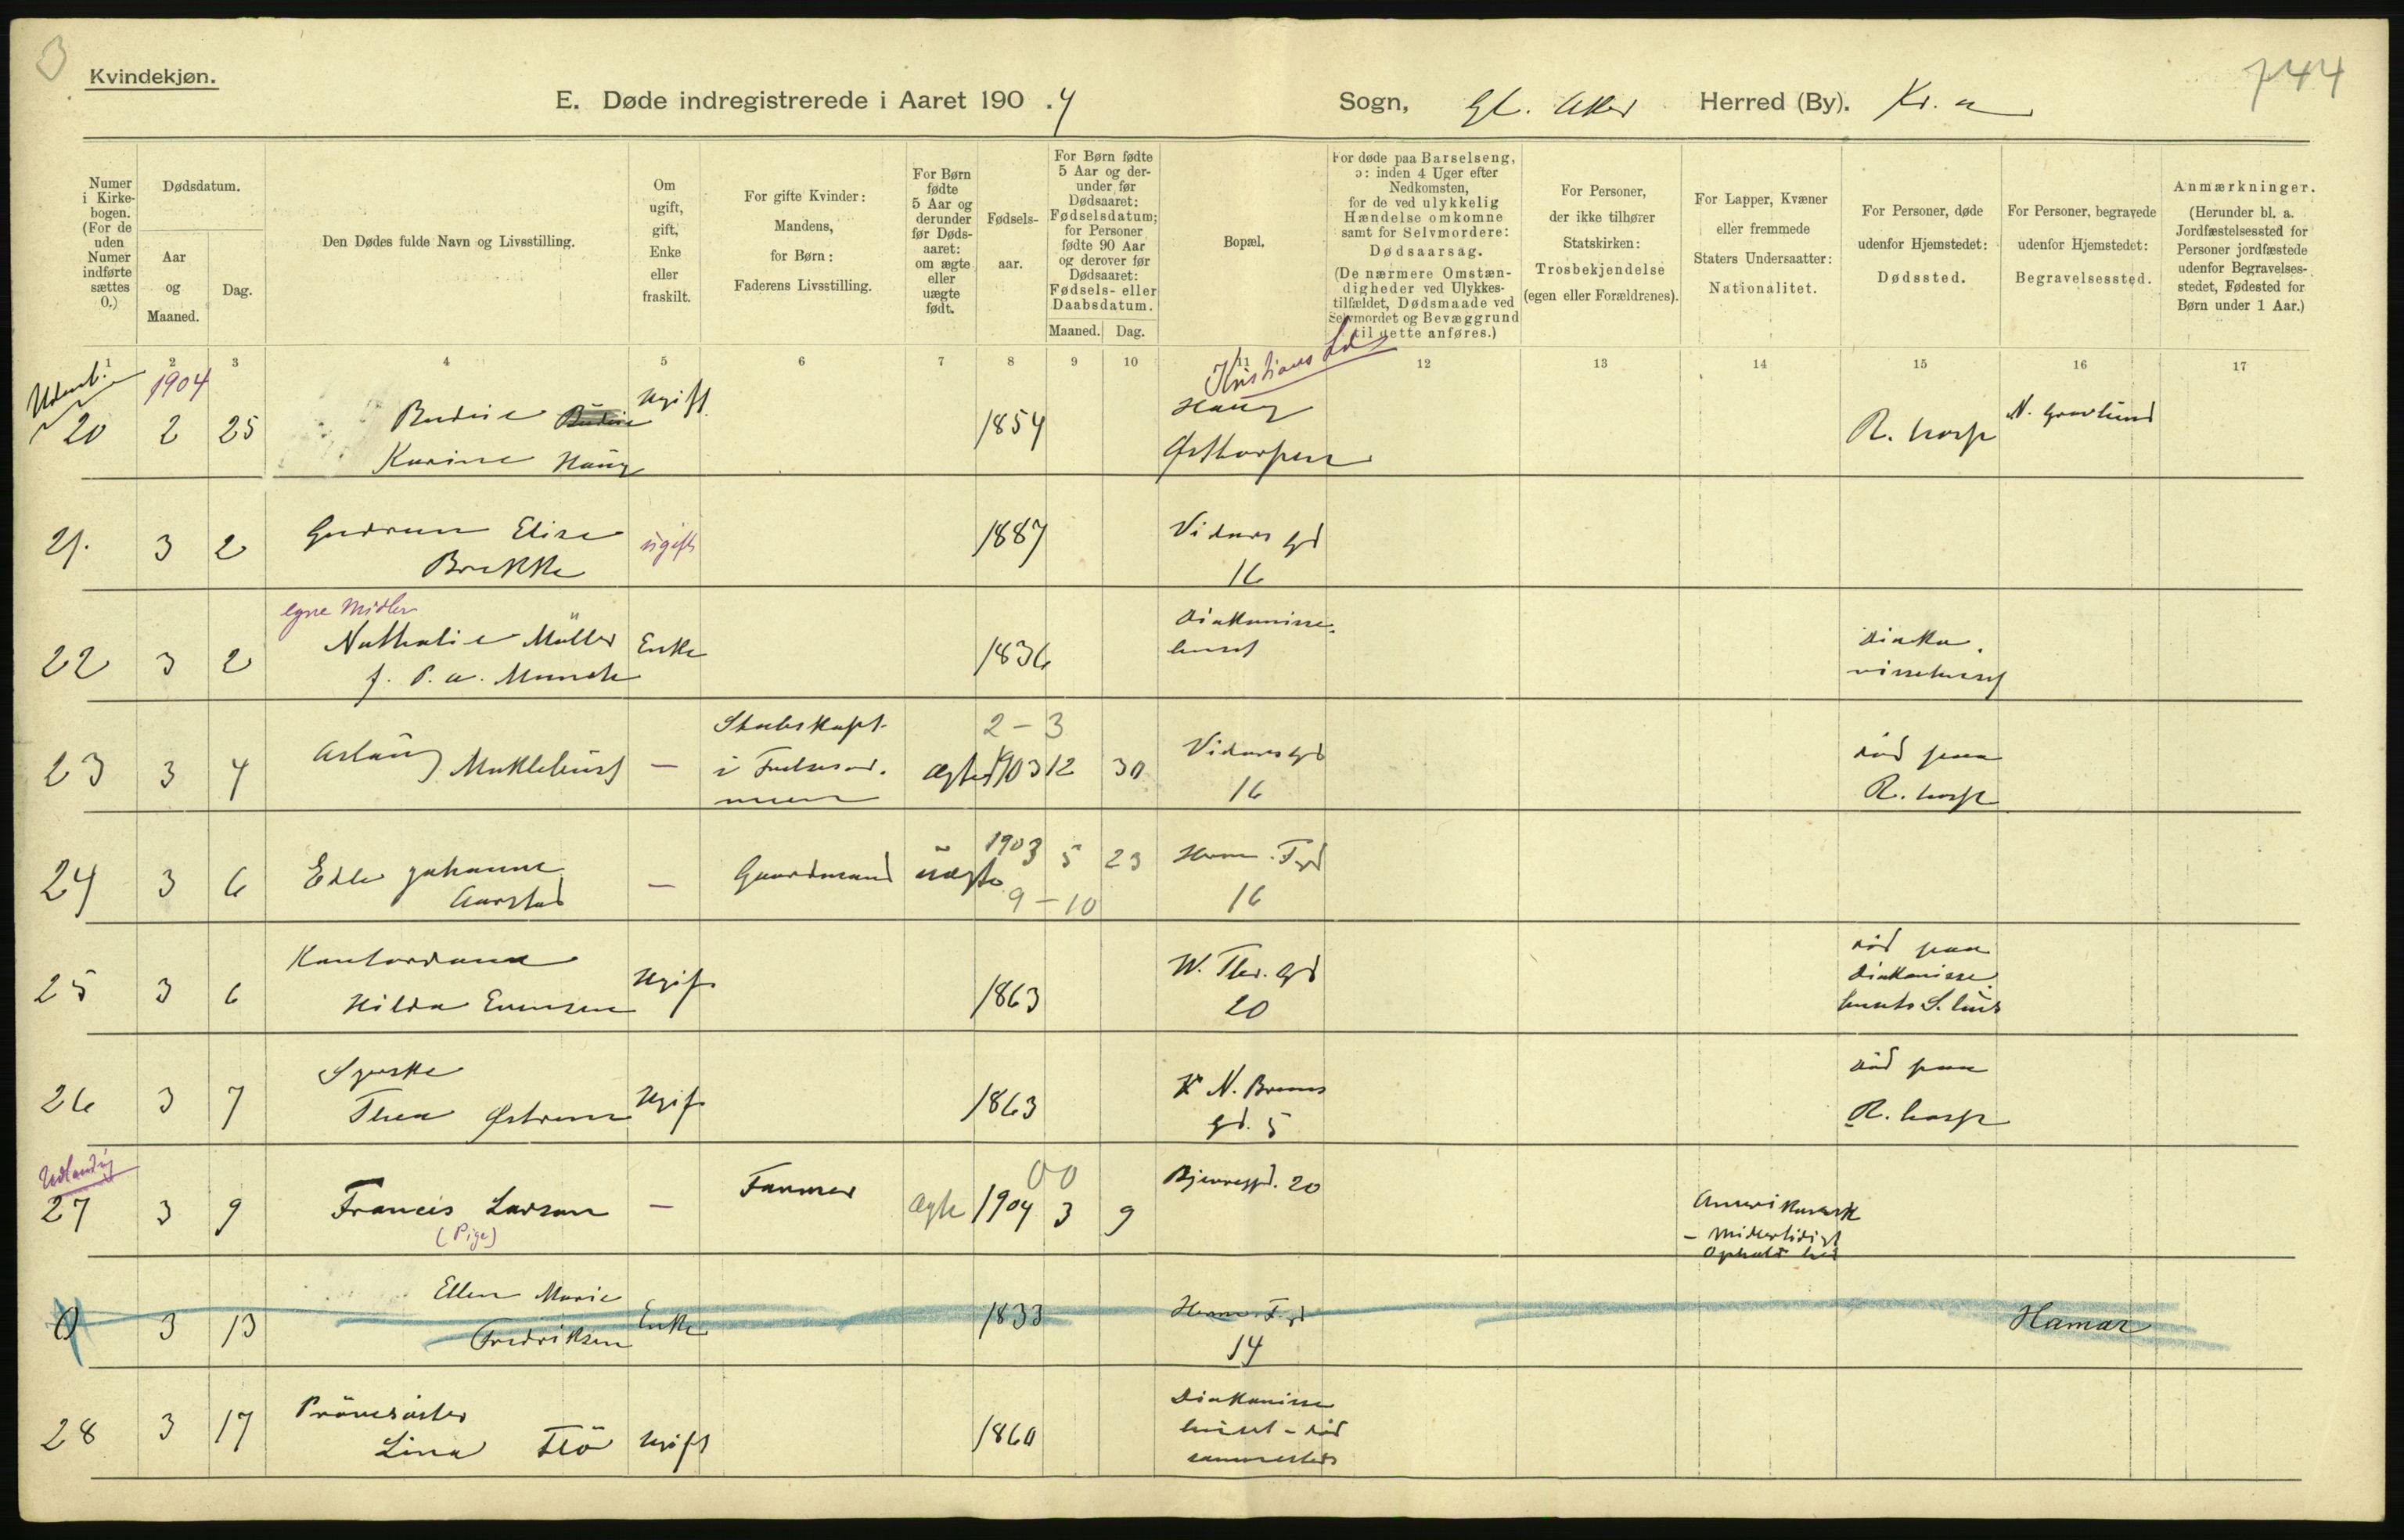 3
744
Kvindekjøn.
E. Døde indregistrerede i Aaret 190 .4 Sogn, Gl. Aker Herred (By). Kr.a
Numer i Kirkebogen. (For de uden Numer indførte sættes 0.)
Dødsdatum.
Aar og Maaned.
Dag.
Den Dødes fulde Navn og Livsstilling.
Om ugift, gift, Enke eller fraskilt.
For gifte Kvinder: Mandens, for Børn: Faderens Livsstilling.
For Børn fødte 5 Aar og derunder før Dødsaaret: om ægte eller uægte født.
Fødselsaar.
For Børn fødte 5 Aar og derunder før Dødsaaret: Fødselsdatum; for Personer fødte 90 Aar og derover før Dødsaaret: Fødsels- eller Daabsdatum.
Maaned. Dag.
Bopæl.
For døde paa Barselseng, ɔ: inden 4 Uger efter Nedkomsten, for de ved ulykkelig Hændelse omkomne samt for Selvmordere: Dødsaarsag.
(De nærmere Omstændigheder ved Ulykkestilfældet, Dødsmaade ved Selvmordet og Bevæggrund til dette anføres.)
For Personer, der ikke tilhører Statskirken: Trosbekjendelse (egen eller Forældrenes).
For Lapper, Kvæner eller fremmede Staters Undersaatter: Nationalitet.
For Personer, døde udenfor Hjemstedet: Dødssted.
For Personer, begravede udenfor Hjemstedet: Begravelsessted.
Anmærkninger.
(Herunder bl. a. Jordfæstelsessted for Personer jordfæstede udenfor Begravelsesstedet, Fødested for Børn under 1 Aar.)
1 2 3 4 5 6 7 8 9 10 11 12 13 14 15 16 17
Udenb. 1904 Kristians
20 2 25 Ugift 1854 Haug R. hosp N. Gravlund
Karine Haug
21. 3 2 Gudrun Elise ugift 1887 Vidars gd
Brekke 16
egne Midler
22 3 2 Nathalie Müller Enke 1836 Diakonisse- Diako-
f. P. A. Munch huset nissehuset
2 - 3
23 3 4 Aslaug Myklebust — Stabskapt. ægte 1903 12 30 Vidarsgd død paa
16 R. hosp
24 3 6 Johanne — Gaardmand uægte 1903 5 23 Herm. F. gd
Aarstad 9 - 10 16
Kontordame
25 3 6 Hilda Evensen Ugift 1863 W. Thr. gd død paa
20 diakonisse-
husets S. hus
Syerske
26 3 7 Thea Østrem Ugift 1863 N. Bruns død paa
gd. 5 R. hosp
Udlændig 00
27 3 9 Francis Larson — Farmer ægte 1904 3 9 Bjerregd. 20 Amerikansk
(Pige) - Midlertidigt
Ophold her
Ellen Marie
0 3 13 Fredriksen Enke 1833 Herm. F. gd Hamar
14
Prövesöster
28 3 17 Lina Flö Ugift 1860 Diakonisse
huset - död
sammesteds